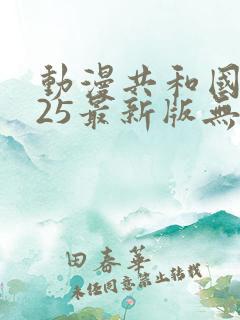 動漫共和國
25最新版無
田春華
未经同意禁止转载